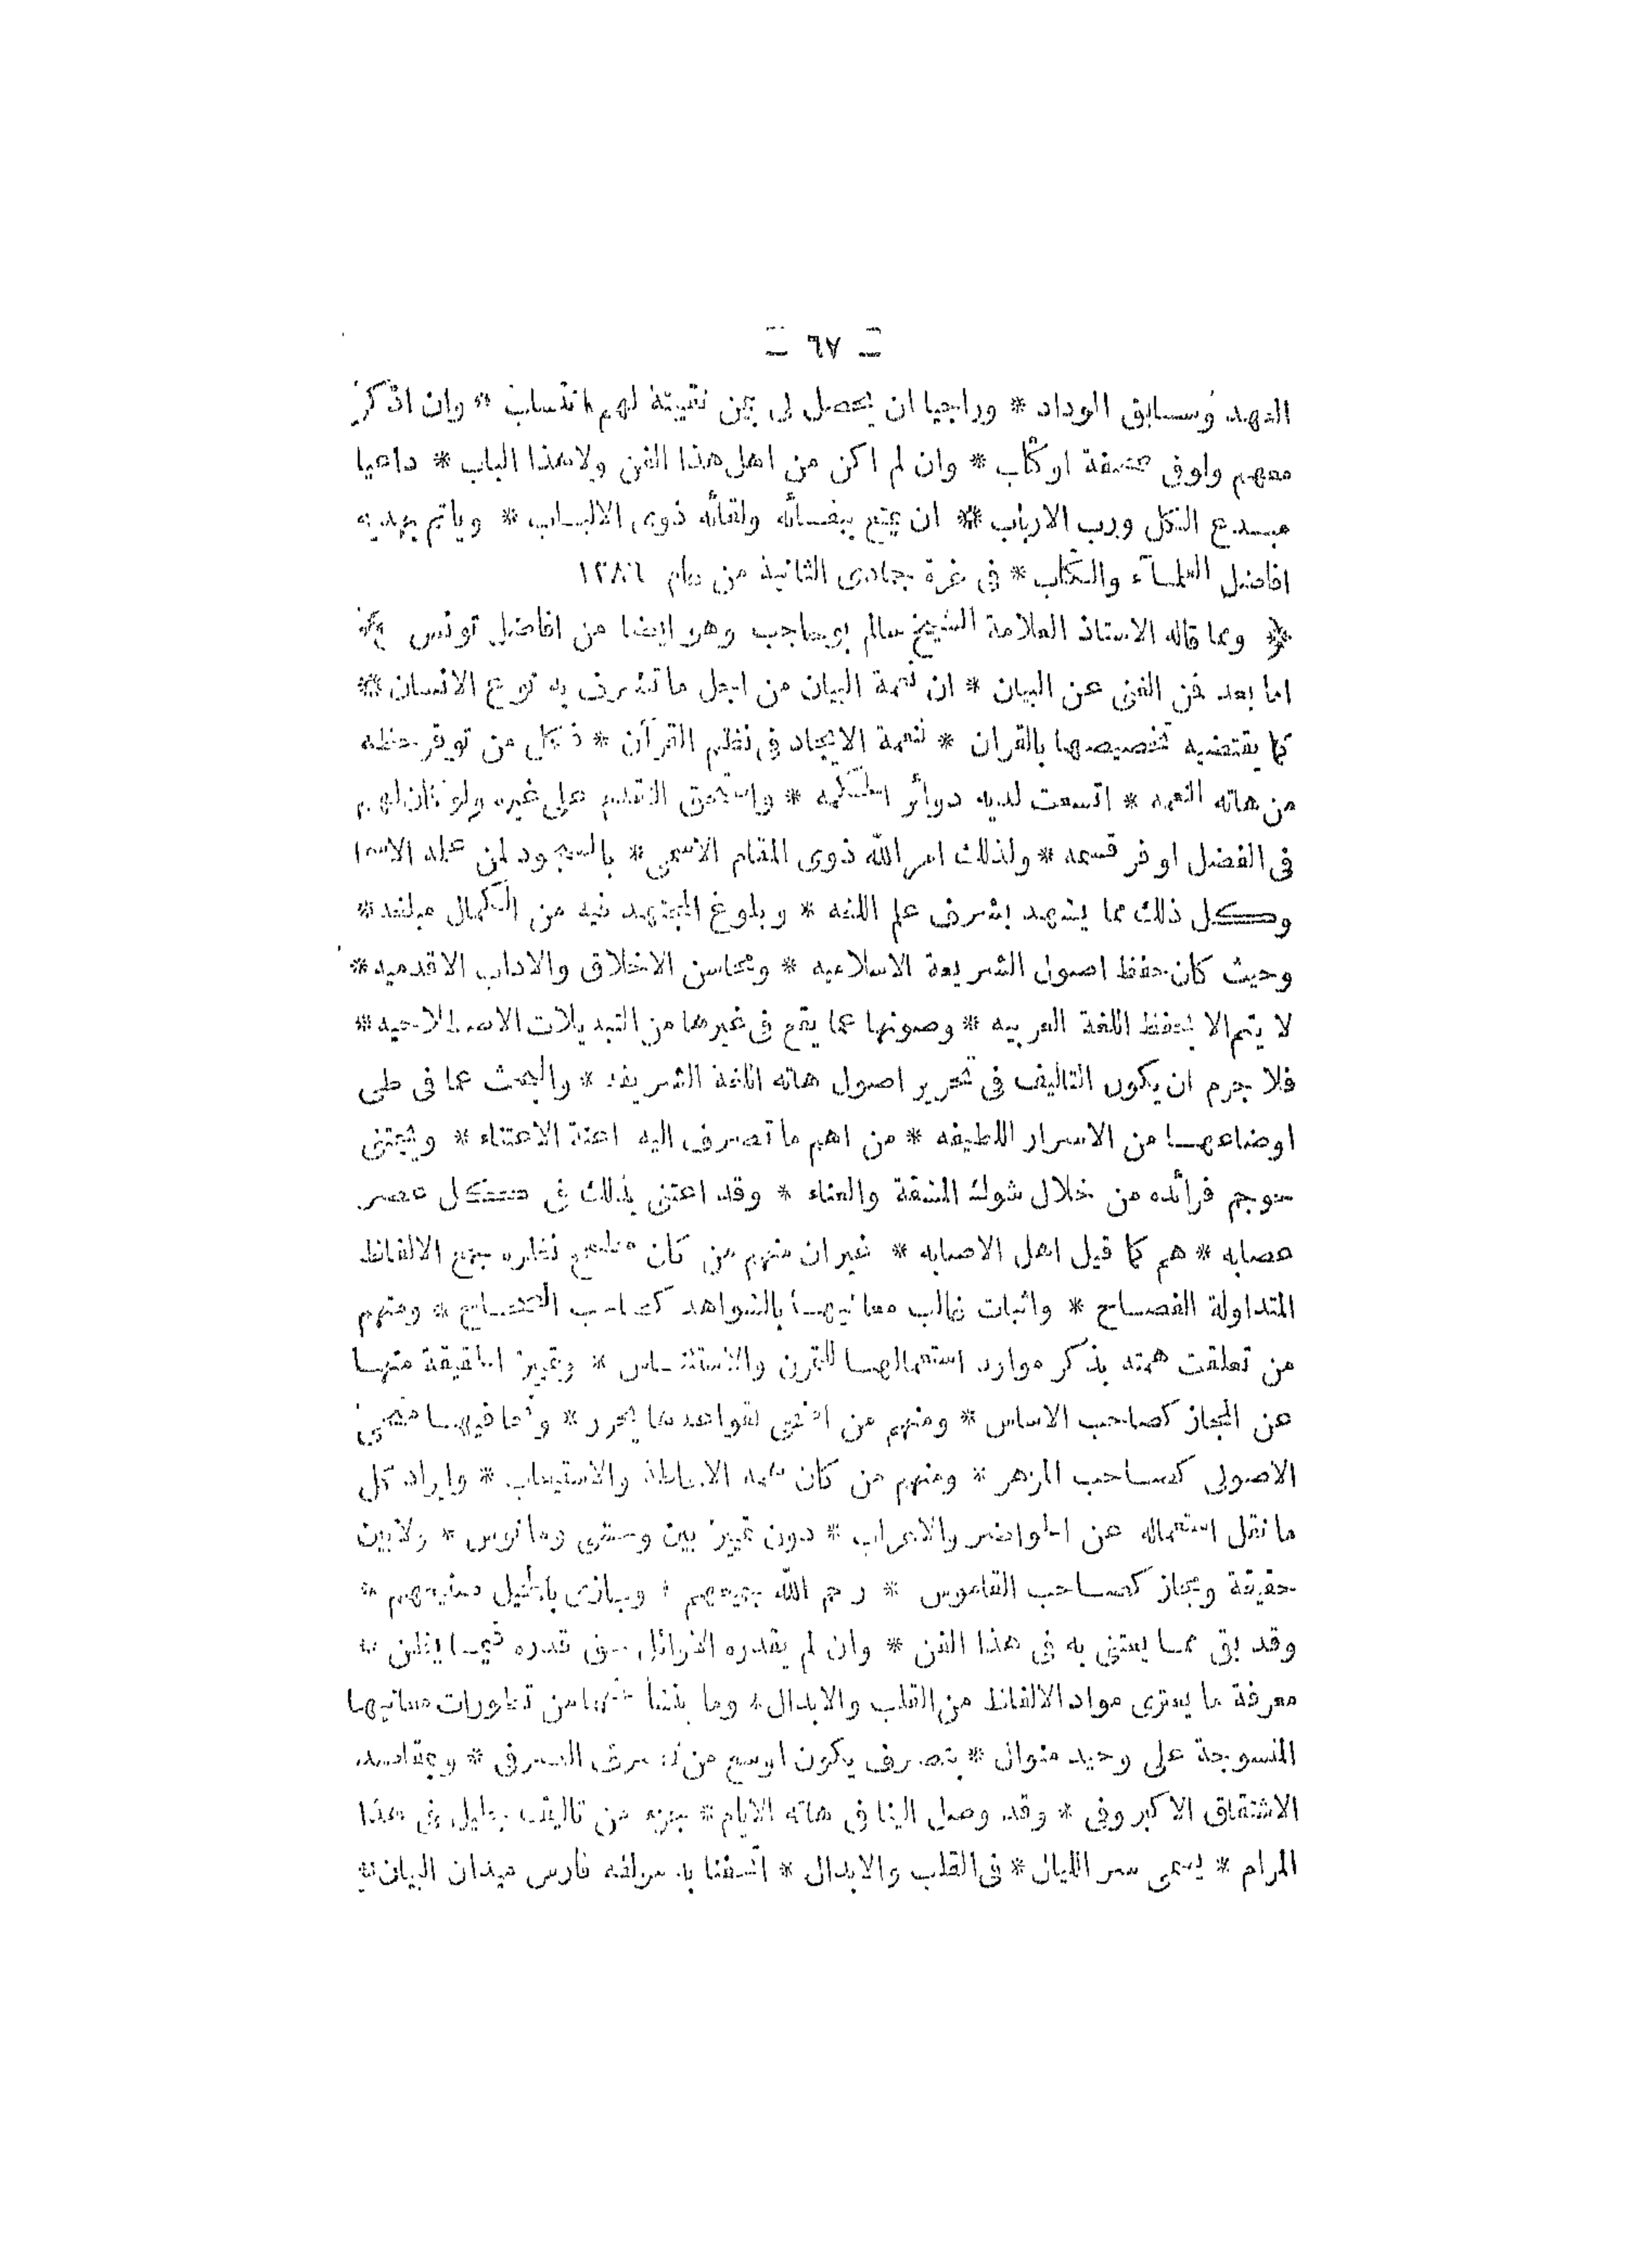 ٦٧
العهد وسابق الوداد * وراجيا ان يحصل لى بمن نقيبته لهم انتساب * وان اذكر
معهم ولوفى صحيفة اوكتاب * وان لم اكن من اهل هذا الفن ولاهذا الباب * داعيا
مبدع الكل ورب الارباب * ان يمتع ببقائه ولقائه ذوى الالباب * وياتم بهديه
افاضل العلمآء والكتاب * فى غرة جمادى الثانية من عام ١٢٨٦
وعما قاله الاستاذ العلامة الشيخ سالم بوحاجب وهو ايضا من افاضل تونس
اما بعد فمن الغنى عن البيان * ان نعمة البيان من اجل ماتشرف به نوع الانسان *
كما يقتضيه تخصيصها بالقران * لنعمة الايجاد فى نظم القرآن * فكل من توفر حظه
من هاته النعمه * اتسعت لديه دوائر الحكمه * واستحق التقدم على غيره ولو كان لهم
فى الفضل اوفر قسمه * ولذلك امر الله ذوى المقام الاسمى * بالسجود لمن علمه الاسما
وكل ذلك مما يشهد بشرف علم اللغه * وبلوغ المجتهد فيه من الكمال مبلغه *
وحيث كان حفظ اصول الشريعة الاسلاميه * ومحاسن الاخلاق والاداب الاقدميه *
لا يتم الا بحفظ اللغة العربيه * وصونها عما يقع فى غيرها من التبديلات الاصطلاحيه *
فلا جرم ان يكون التاليف فى تحرير اصول هاته اللغة الشريفه * والبحث عما فى طى
اوضاعها من الاسرار اللطيفه * من اهم ماتصرف اليه اعنة الاعتناء * ويجتنى
فرائده من خلال شوك المشقة والعناء * وقد اعتنى بذلك فى كل عصر
عصابه * هم كما قيل اهل الاصابه * غير ان منهم من كان مطمح نظره جمع الالفاظ
المتداولة الفصاح * واثبات غالب معانيها بالشواهد كصاحب الصحاح * ومنهم
من تعلقت همته بذكر موارد استعمالها للتمرن والاستئناس * وتمييز الحقيقة منها
عن المجاز كصاحب الاساس * ومنهم من اعتنى لقواعدها يحرر * ونحا فيها منحى
الاصولى كصاحب المزهر * ومنهم من كان همه الاحاطة والاستيعاب * وايراد كل
ما نقل استعماله عن الحواضر والاعراب * دون تمييز بين وحشى ومانوس * ولابين
حقيقة ومجاز كصاحب القاموس * رحم الله جميعهم * وجازى بالجميل صنيعهم *
وقد بقى مما يعتنى به فى هذا الفن * وان لم يقدره الاوائل حق قدره فيما يظن *
معرفة ما يعترى مواد الالفاظ من القلب والابدال * وما ينشأ عنهما من تطورات معانيها
المنسوجة على وحيد منوال * بتصرف يكون اوسع من تصرف الصرفى * وبمقاصد
الاشتقاق الاكبر وفى * وقد وصل الينا فى هاته الايام * جزء من تاليف جليل فى هذا
المرام * يسمى سر الليال * فى القلب والابدال * اتحفنا به مولفه فارس ميدان البيان *